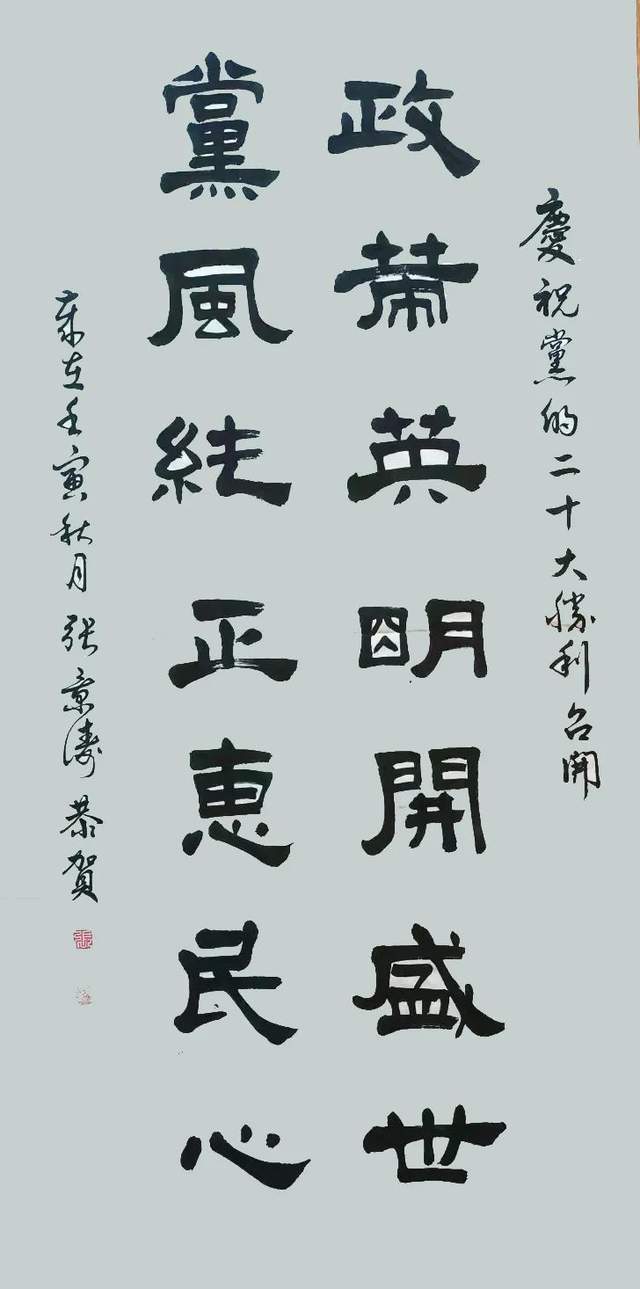 慶祝黨的二十大勝利召開
政策英明開盛世
黨風純正惠民心
歲在壬寅秋月张景濤恭賀